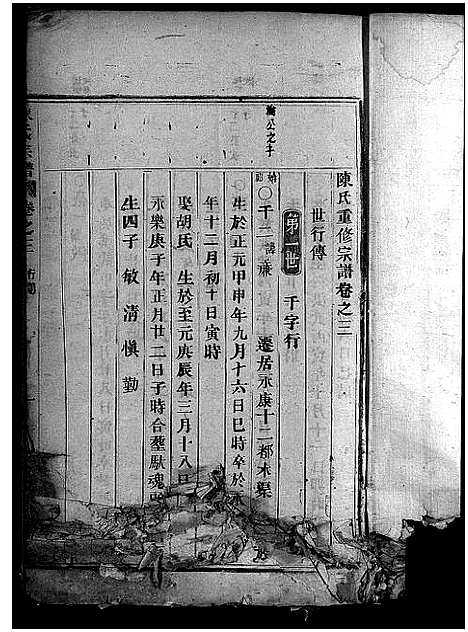 陳氏重修宗譜卷之三
世行傳
第一世 千字行
瀹公之子
始祖
〇千二 諱 遷居永康十二都木渠
生於正元甲申年九月十六日巳時卒於
年十二月初十日寅時
娶胡氏 生於至元庚辰年三月十八日
永樂庚子年正月廿二日子時合塟馱魂
生四子 敏 清 慎 勤